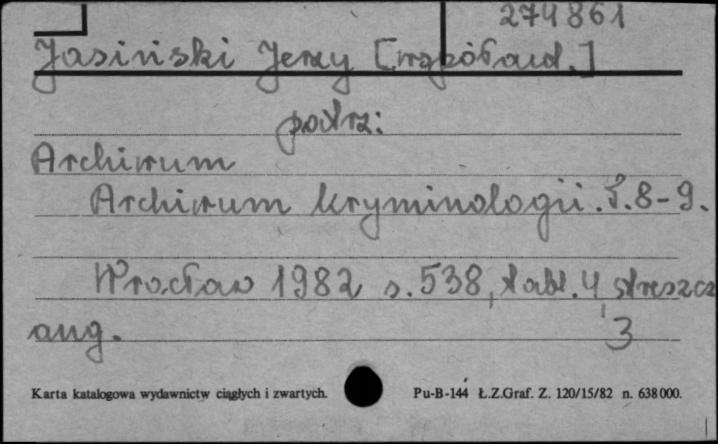 274861
Jasiński Jerzy [współaut.]
patrz:
Archiwum
Archiwum kryminologii. T. 8-9.
Wrocław 1982 s. 538, tabl. 4 streszcz
ang. 3
Karta katalogowa wydawnictw ciągłych i zwartych. Pu-B-144 Ł.Z.Graf. Z. 120/15/82 n. 638000.